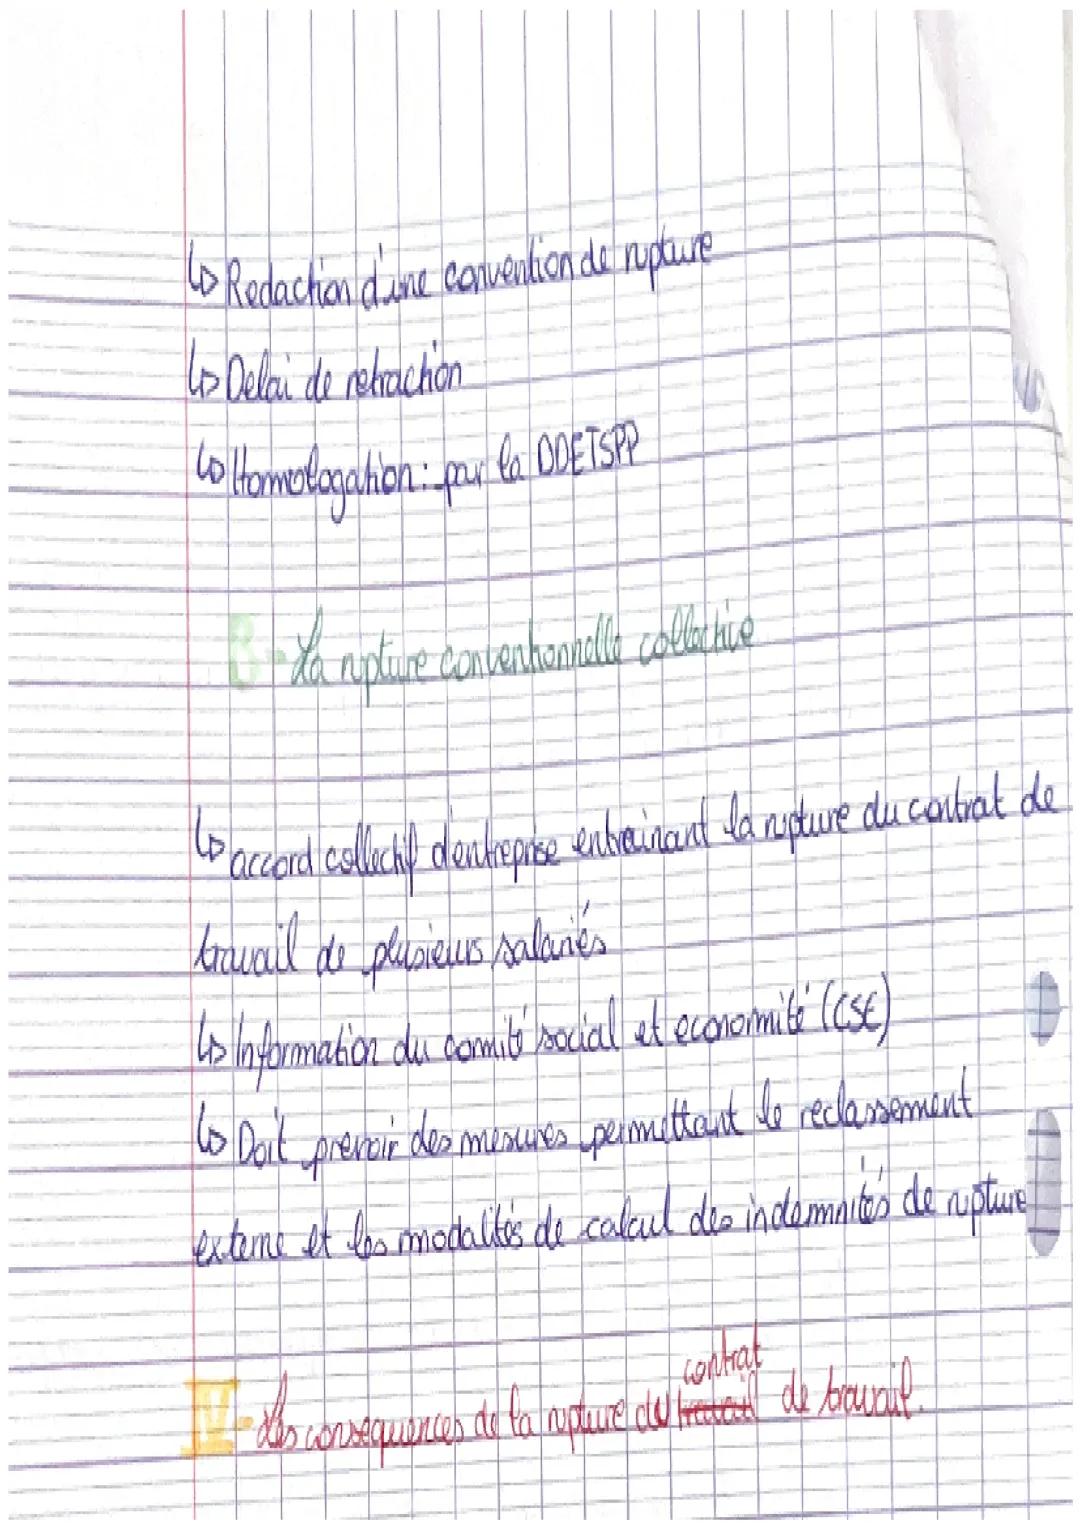 ↳ Redaction d'une convention de rupture
↳ Delai de retraction
↳ Homologation : par la DDETSPP
B - La rupture conventionnelle collective
↳ accord collectif d'entreprise entrainant la rupture du contrat de
travail de plusieurs salariés
↳ Information du comité social et economité (CSE)
↳ Doit prevoir des mesures permettant le reclassement
externe et les modalités de calcul des indemnités de rupture
IV - Les consequences de la rupture du ~~travail~~ contrat de travail.